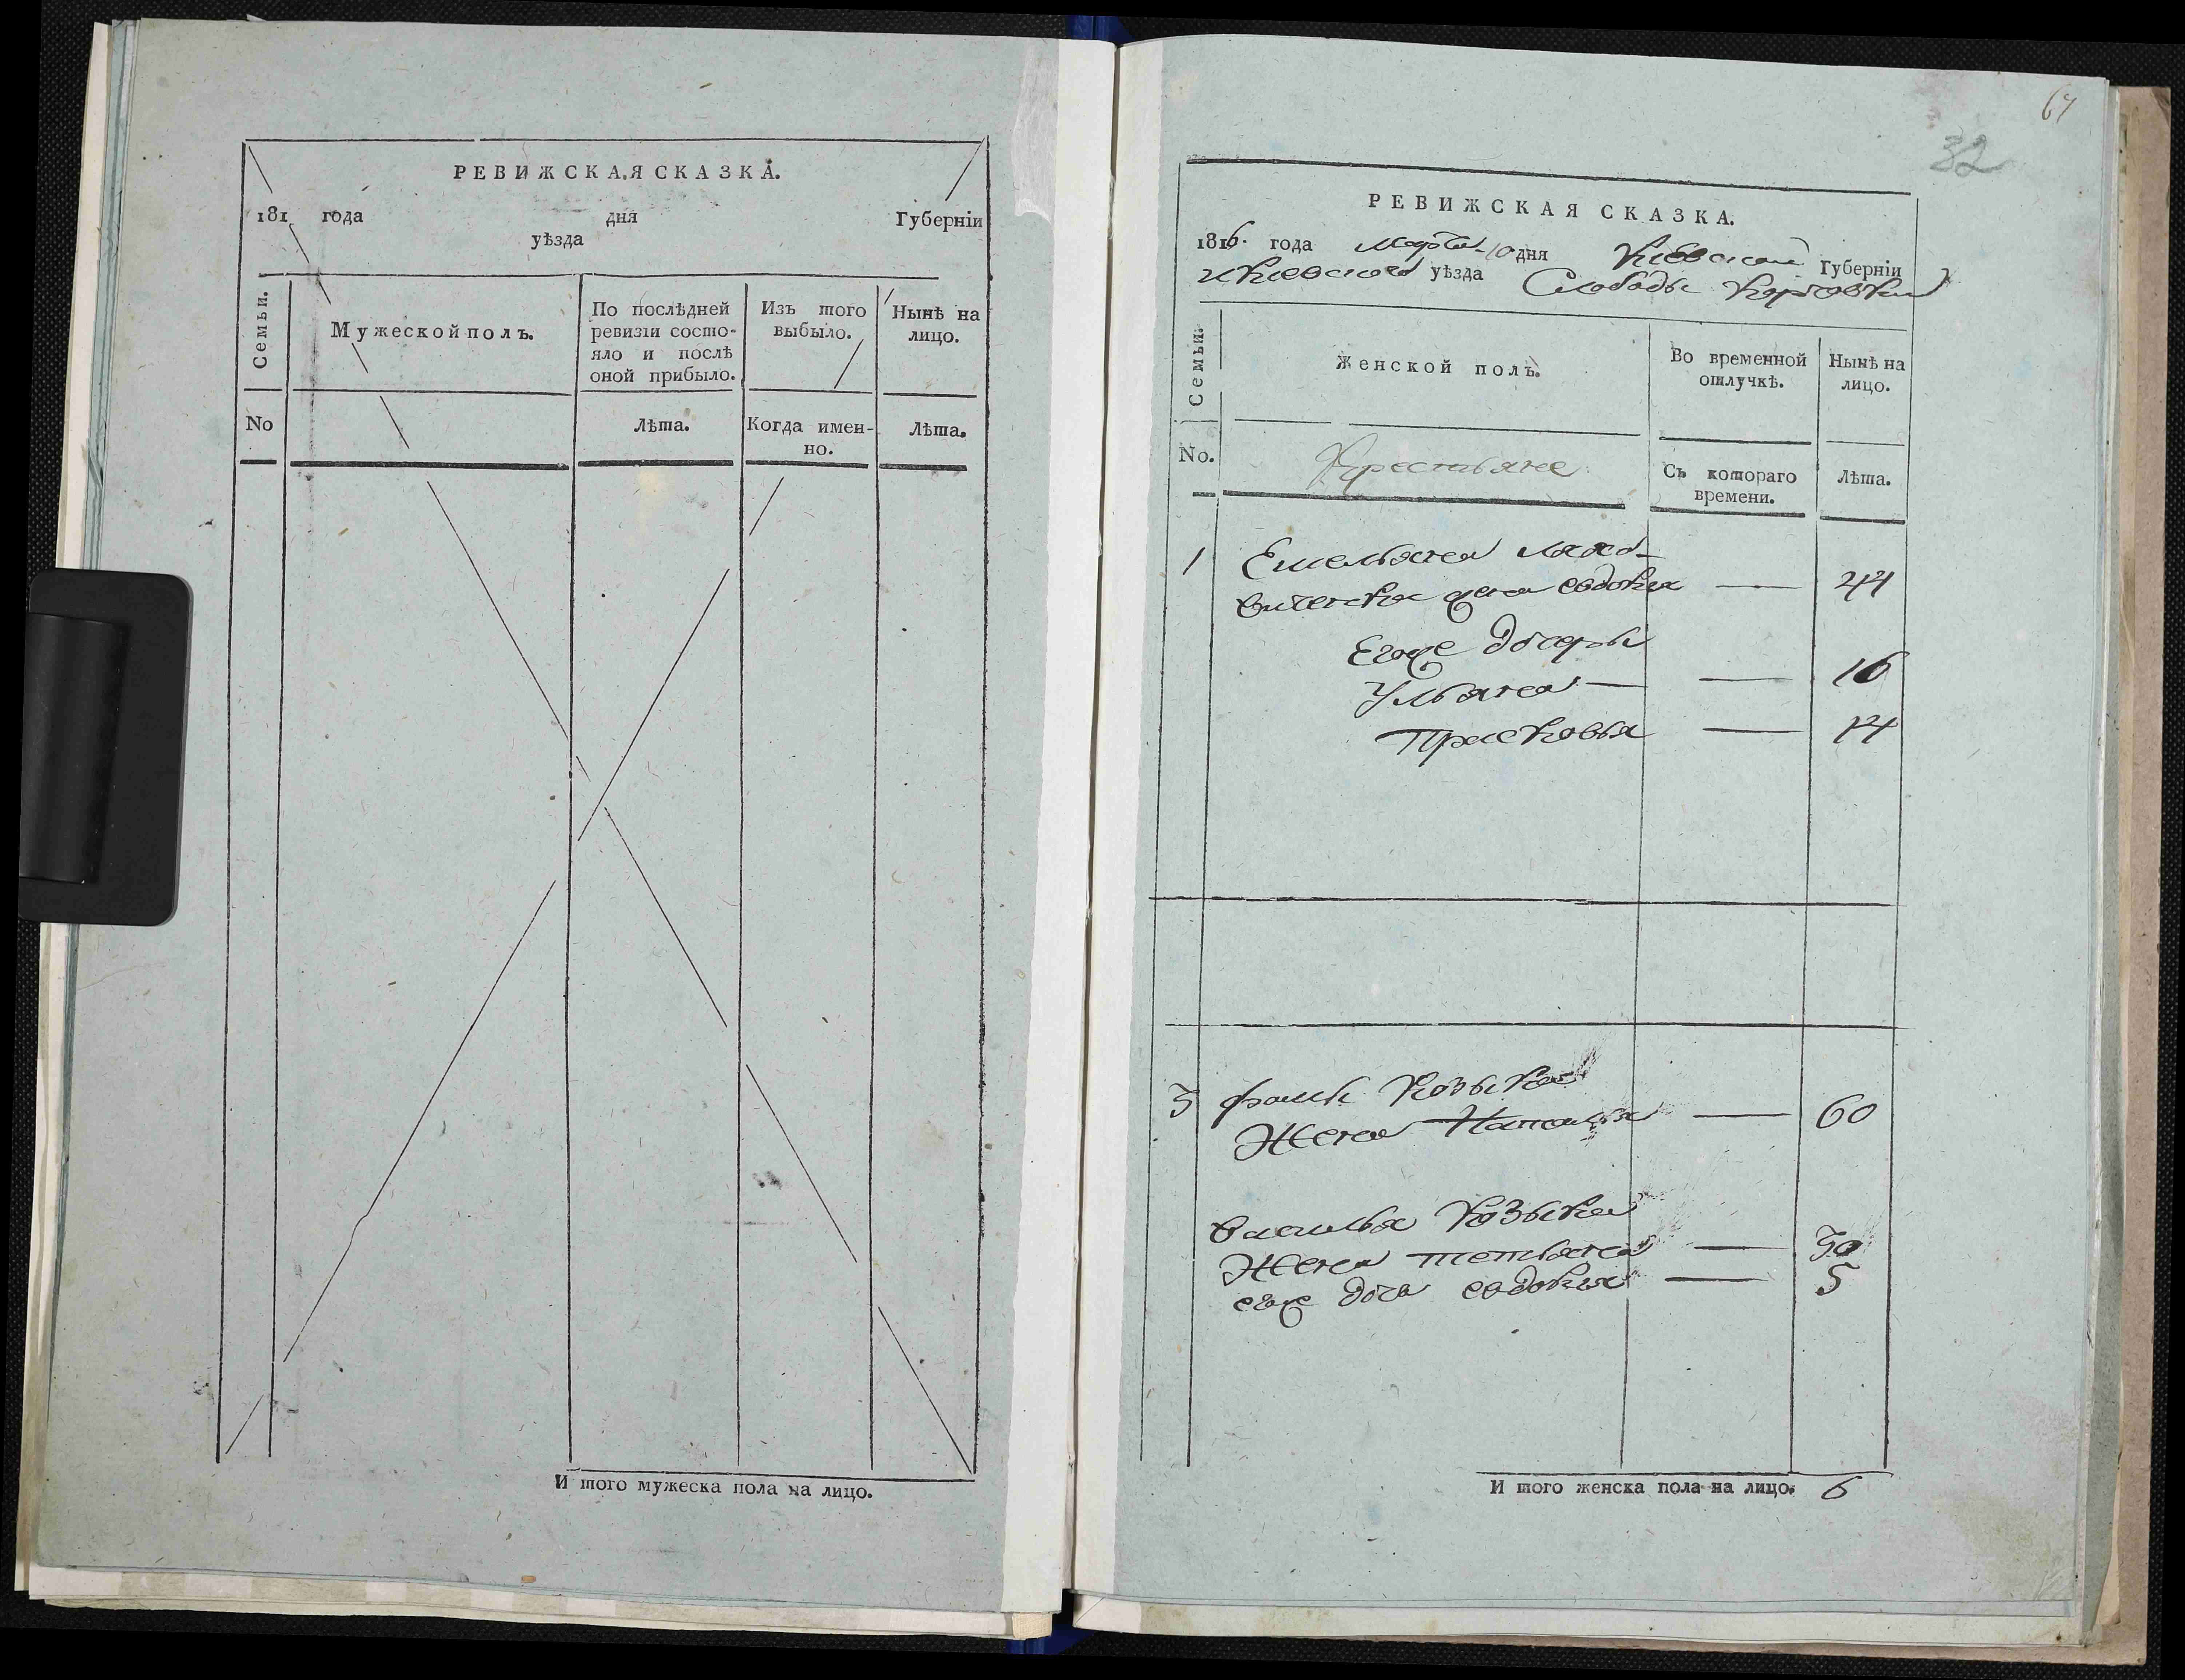 РЕВИЖСКАЯ СКАЗКА.
181 года дня Губерніи
уѣзда
Семьи.
Мужеской полъ.
По послѣдней ревизіи состояло и послѣ оной прибыло.
Изъ того выбыло.
Нынѣ на лицо.
No
Лѣта.
Когда именно.
Лѣта.
И того мужеска пола на лицо.
67
32
РЕВИЖСКАЯ СКАЗКА.
1816. года Марта 10 дня Киевской Губерніи
и Киевского уѣзда Слободы
Семьи.
Женской полъ.
Во временной отлучкѣ.
Нынѣ на лицо.
No.
Крестьяне
Съ котораго времени.
Лѣта.
1 Емельяна
жена евдокия — 44
Егоже дочеры
Ульяна — — 16
Прасковья — 14
3 фомы Козыки
Жена Наталья — 60
Василья Козыки
Жена тетьяна — 30
егоже дочь евдокия — 5
И того женска пола на лицо. 6